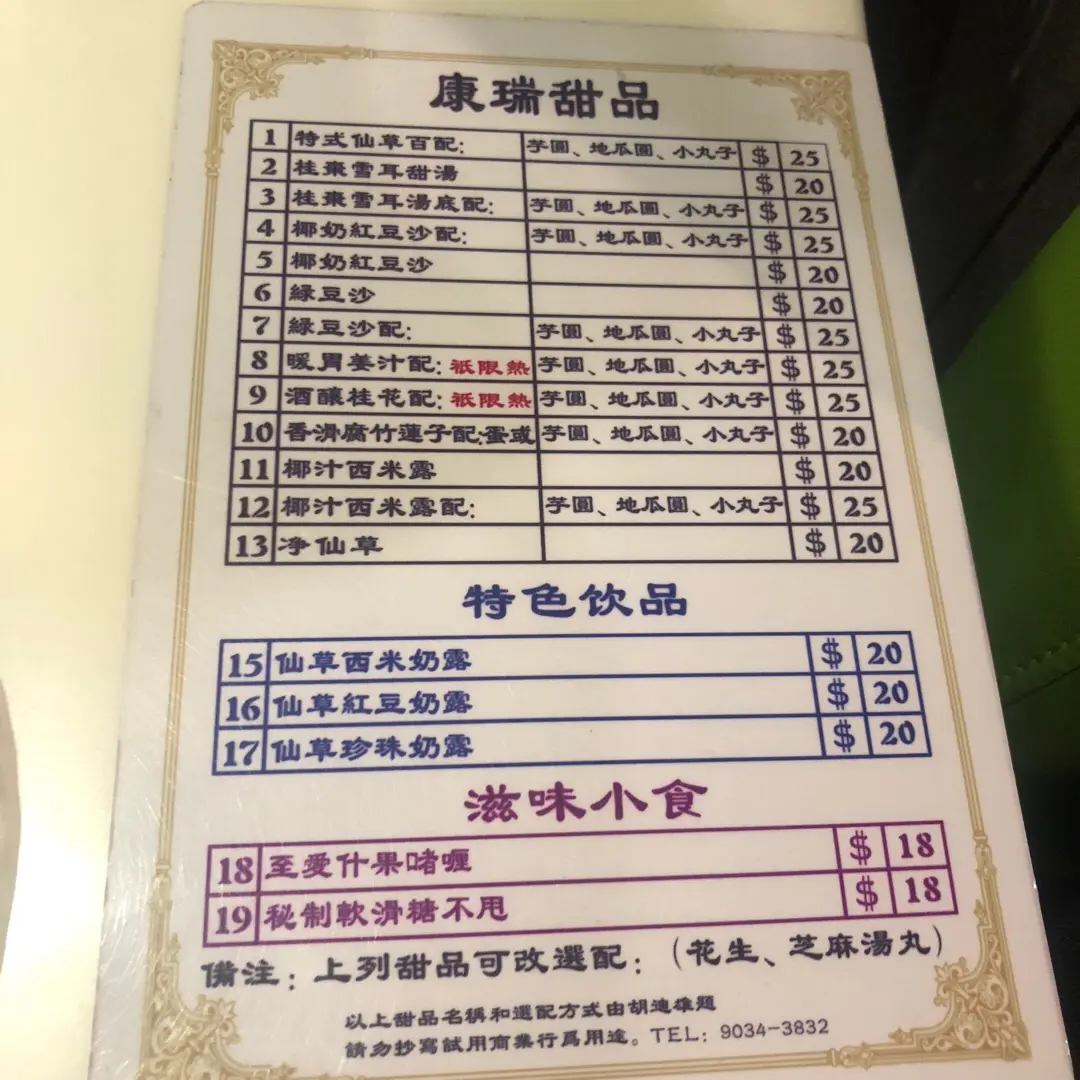 康瑞甜品
1 特式仙草百配: 芋圓、地瓜圓、小丸子 $ 25
2 桂棗雪耳甜湯 $ 20
3 桂棗雪耳湯底配: 芋圓、地瓜圓、小丸子 $ 25
4 椰奶紅豆沙配: 芋圓、地瓜圓、小丸子 $ 25
5 椰奶紅豆沙 $ 20
6 綠豆沙 $ 20
7 綠豆沙配: 芋圓、地瓜圓、小丸子 $ 25
8 暖胃姜汁配: 祗限熱 芋圓、地瓜圓、小丸子 $ 25
9 酒釀桂花配: 祗限熱 芋圓、地瓜圓、小丸子 $ 25
10 香滑腐竹蓮子配:蛋或 芋圓、地瓜圓、小丸子 $ 20
11 椰汁西米露 $ 20
12 椰汁西米露配: 芋圓、地瓜圓、小丸子 $ 25
13 净仙草 $ 20
特色饮品
15 仙草西米奶露 $ 20
16 仙草紅豆奶露 $ 20
17 仙草珍珠奶露 $ 20
滋味小食
18 至愛什果啫喱 $ 18
19 秘制軟滑糖不甩 $ 18
備注: 上列甜品可改選配: (花生、芝麻湯丸)
以上甜品名稱和選配方式由胡迪雄題
請勿抄寫試用商業行爲用途。TEL: 9034-3832